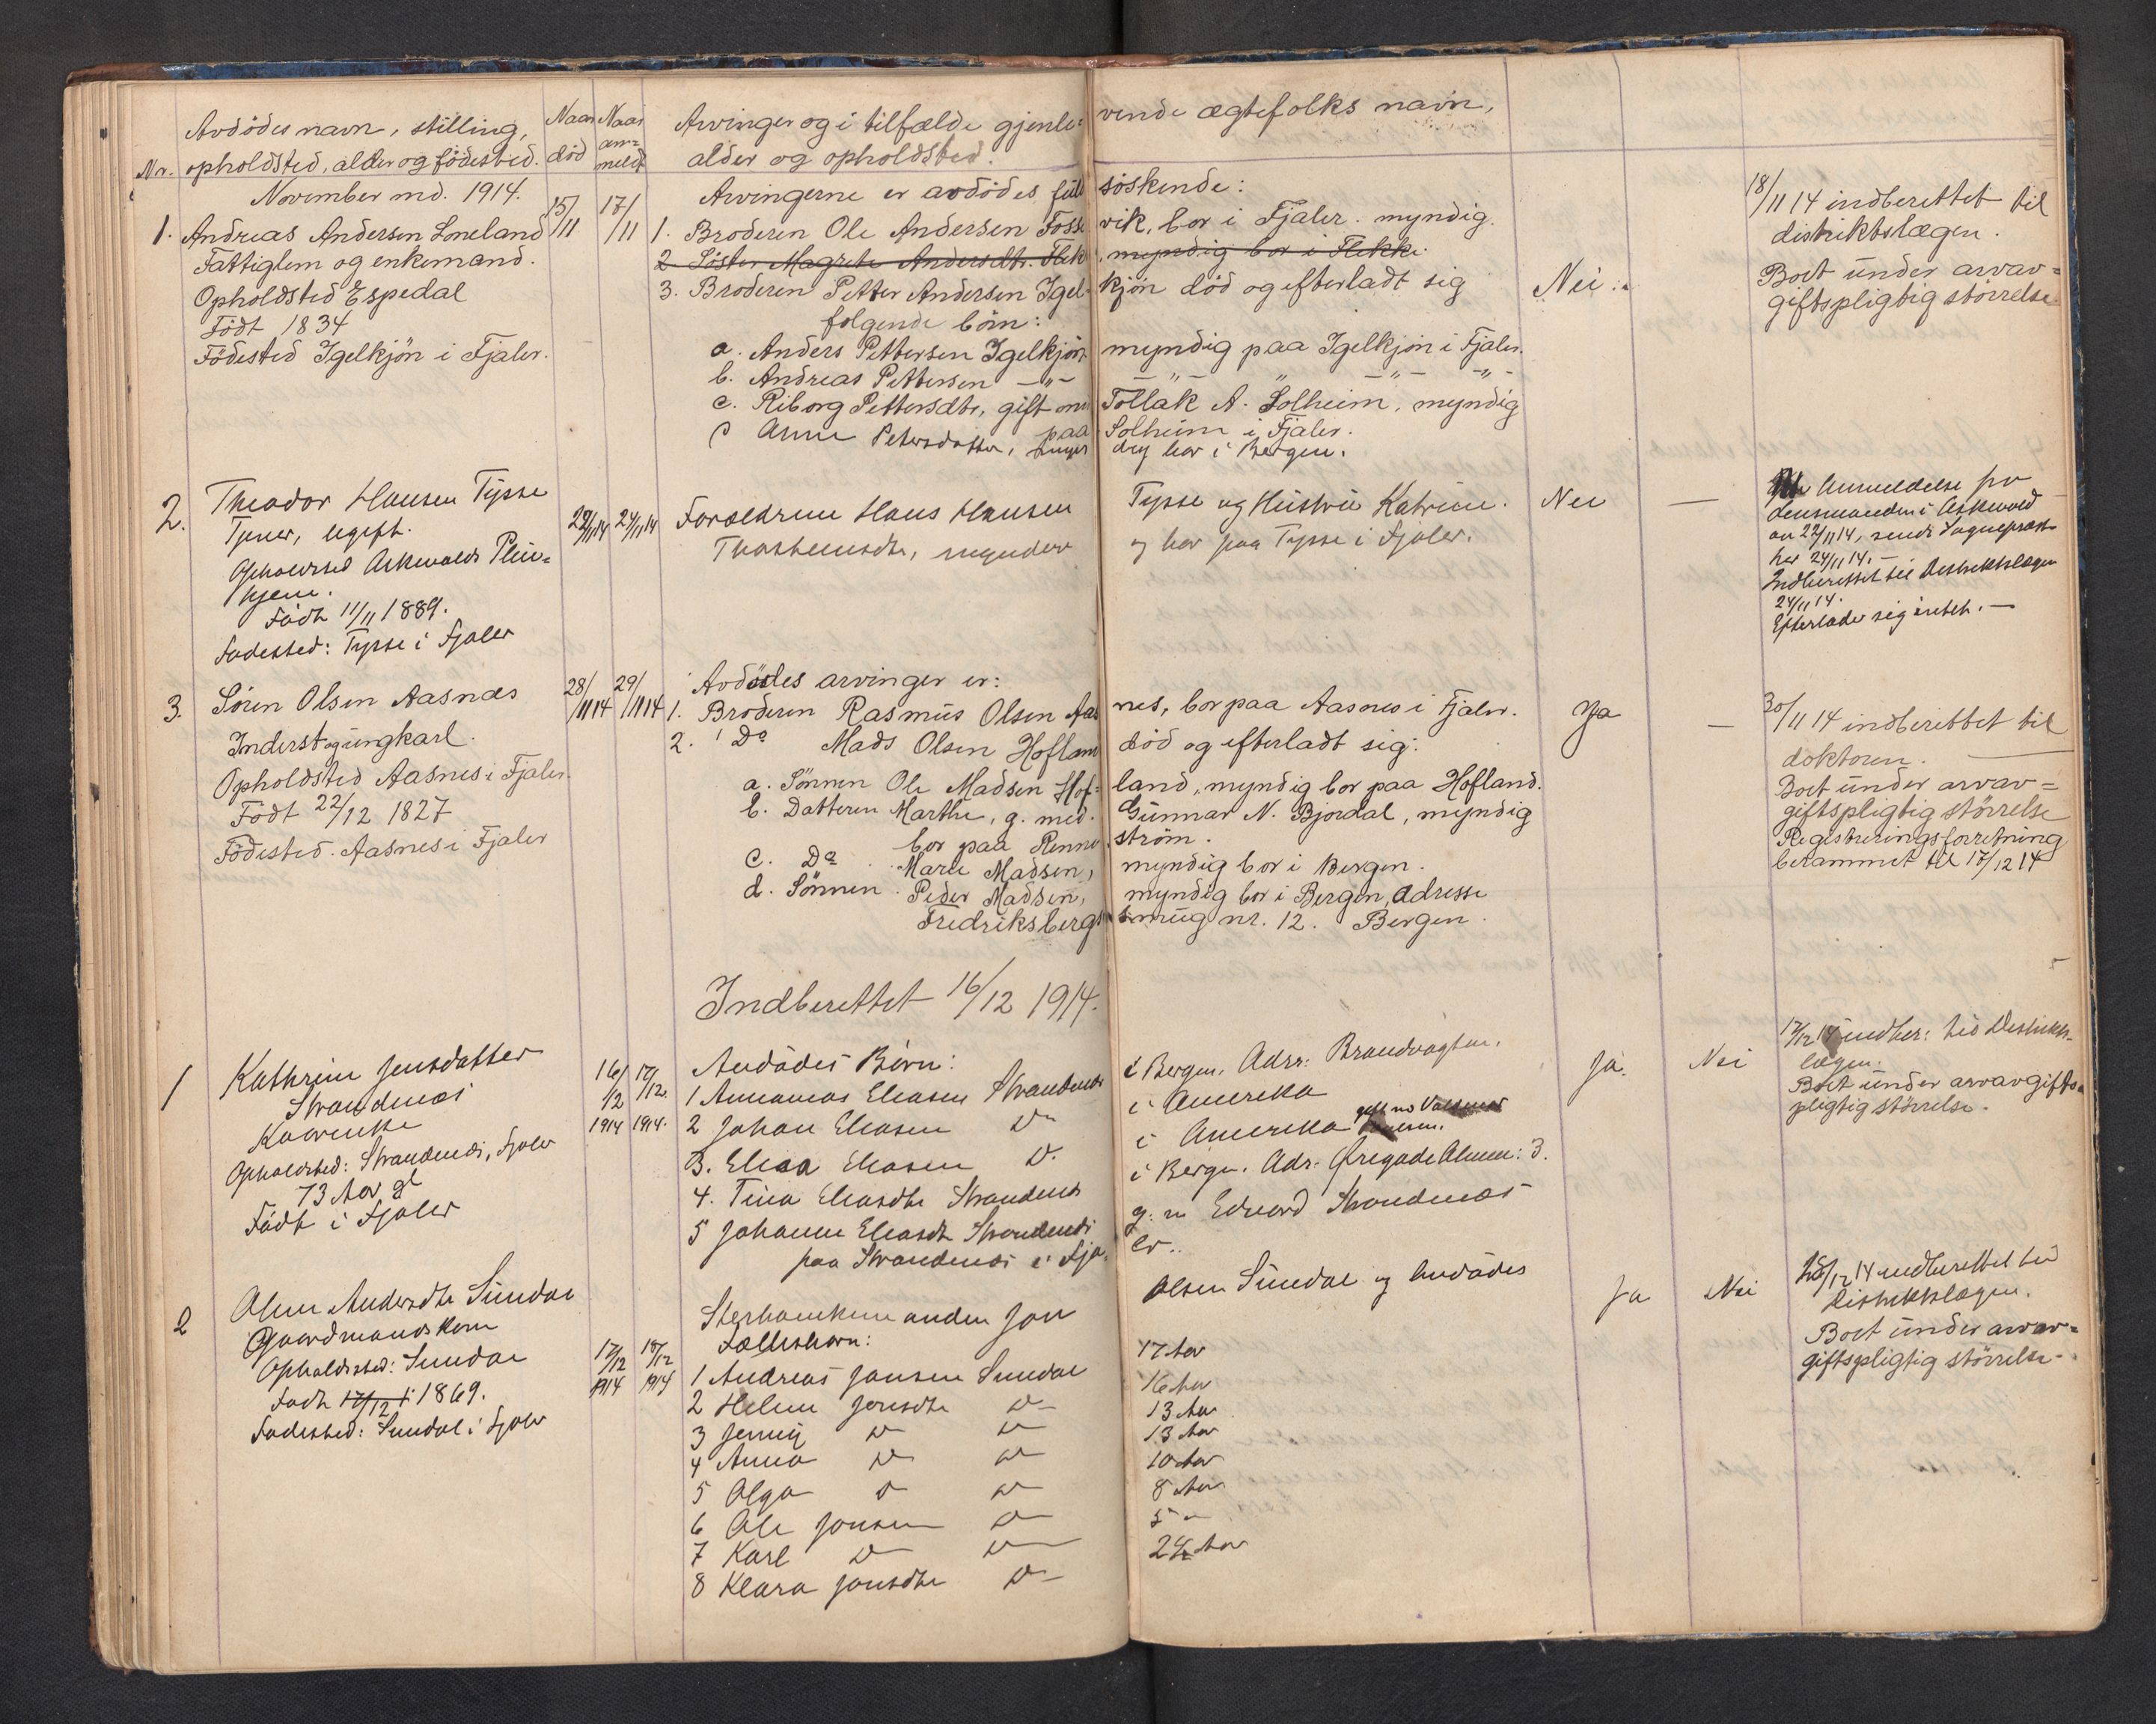 Avdödes navn, stilling,
Nr. opholdsted, alder og födested.
Naar död
Naar anmeldt
Arvinger og i tilfælde gjenle= vende ægtefolks navn,
alder og opholdsted.
November md. 1914.
1. Andreas Andersen Loneland
Fattiglem og enkemand.
Opholdsted Espedal
Födt 1834
Födested Igelkjön i Fjaler.
15/11 17/11
Arvingerne er avdödes full söskende:
1. Broderen Ole Andersen Fosse vik, bor i Fjaler. myndig.
2 Söster Magrete Andersdtr. Flek , myndig bor i Flekke.
3. Broderen Petter Andersen Igel- kjön död og efterladt sig
folgende börn:
a. Anders Pettersen Igelkjön myndig paa Igelkjön i Fjaler.
b. Andreas Pettersen -"- -"- " -"- -"-
c. Riborg Pettersdtr, gift m Tollak A. Solheim, myndig
paa Solheim i Fjaler.
Anne Petersdatter, myn dig bor i Bergen.
Nei
18/11 14 indberettet til
distriktslægen.
Boet under arvav=
giftspligtig störrelse
2. Theodor Hansen Tysse
Tjener, ugift.
Opholdssted Askevolds Plei=
hjem.
Födt 11/11 1889.
Fødested: Tysse i Fjaler
22/11 14 24/11 14
Forældrene Hans Hansen Tysse og Hustru Katrine
Thorstensdtr, myndige og bor paa Tysse i Fjaler.
Nei —
Anmeldelse fra
Lensmanden i Askevold
av 22/11 14, sendt Sogneprest
her 24/11 14.
Indberettet til Distriktslægen
24/11 14.
Efterlader sig intet. —
3. Sören Olsen Aasnæs
Inderst og ungkarl.
Opholdsted Aasnes i Fjaler.
Födt 22/12 1827
Födested. Aasnes i Fjaler
28/11 14 29/11 14
Avdödes arvinger er:
1. Broderen Rasmus Olsen Aas nes, bor paa Aasnes i Fjaler.
2. Do Mads Olsen Hoflan död og efterladt sig:
a. Sönnen Ole Madsen Hof= land, myndig bor paa Hofland.
b. Datteren Marthe, g. med. Gunnar N. Bjordal, myndig
bor paa Renne ström.
c. Do Marie Madsen, myndig bor i Bergen.
d. Sönnen Peder Madsen, myndig bor i Bergen, Adresse
Fredriksbergs smug nr. 12. Bergen.
Ja —
30/11 14 indberettet til
doktoren.
Boet under arvav=
giftspligtig störrelse
Registreringsforretning
berammet til 17/12 14
Indberettet 16/12 1914.
1 Kathrine Jensdatter
Strandenæs
Kaarenke
Opholdsted: Strandenæs, Fjaler
73 Aar gl
Födt i Fjaler
16/12 1914 17/12 1914.
Avdødes Børn:
1 Annanias Eliasen Strandenæs i Bergen. Adrs: Brandvagten.
2 Johan Eliasen Do i Amerika
3. Elias Eliasen Do. i Amerika
4. Tina Eliasdtr Strandenæs i Bergen. Adr. Øregade Almen: 3.
5 Johanne Eliasdtr Strandenæs g. m Edvard Strandenæs
paa Strandenæs i Fja- ler.
Ja. Nei
17/12 14 indber: til Distrikts-
lægen.
Boet under arvavgifts=
pligtig störrelse.
2 Oline Andersdtr Sundal
Gaardmandskone
Opholdssted: Sundal
Født 17/12 1869.
Fødested: Sundal i Fjaler
17/12 1914 18/12 1914
Sterboenkemanden Jon Olsen Sundal og Avdødes
Fællesbørn:
1 Andreas Jonsen Sundal 17 Aar
2 Heline Jonsdtr Do 16 Aar
3 Jenny Do Do 13 Aar
4 Anna Do Do 13 Aar
5 Olga Do Do 10 Aar
6 Ole Jonsen Do 8 Aar
7 Karl Do Do 5 "
8 Klara Jonsdtr Do 2½ Aar
Ja Nei
/12 14 indberettet til
Distriktslægen.
Boet under arvav=
giftspligtig störrelse.